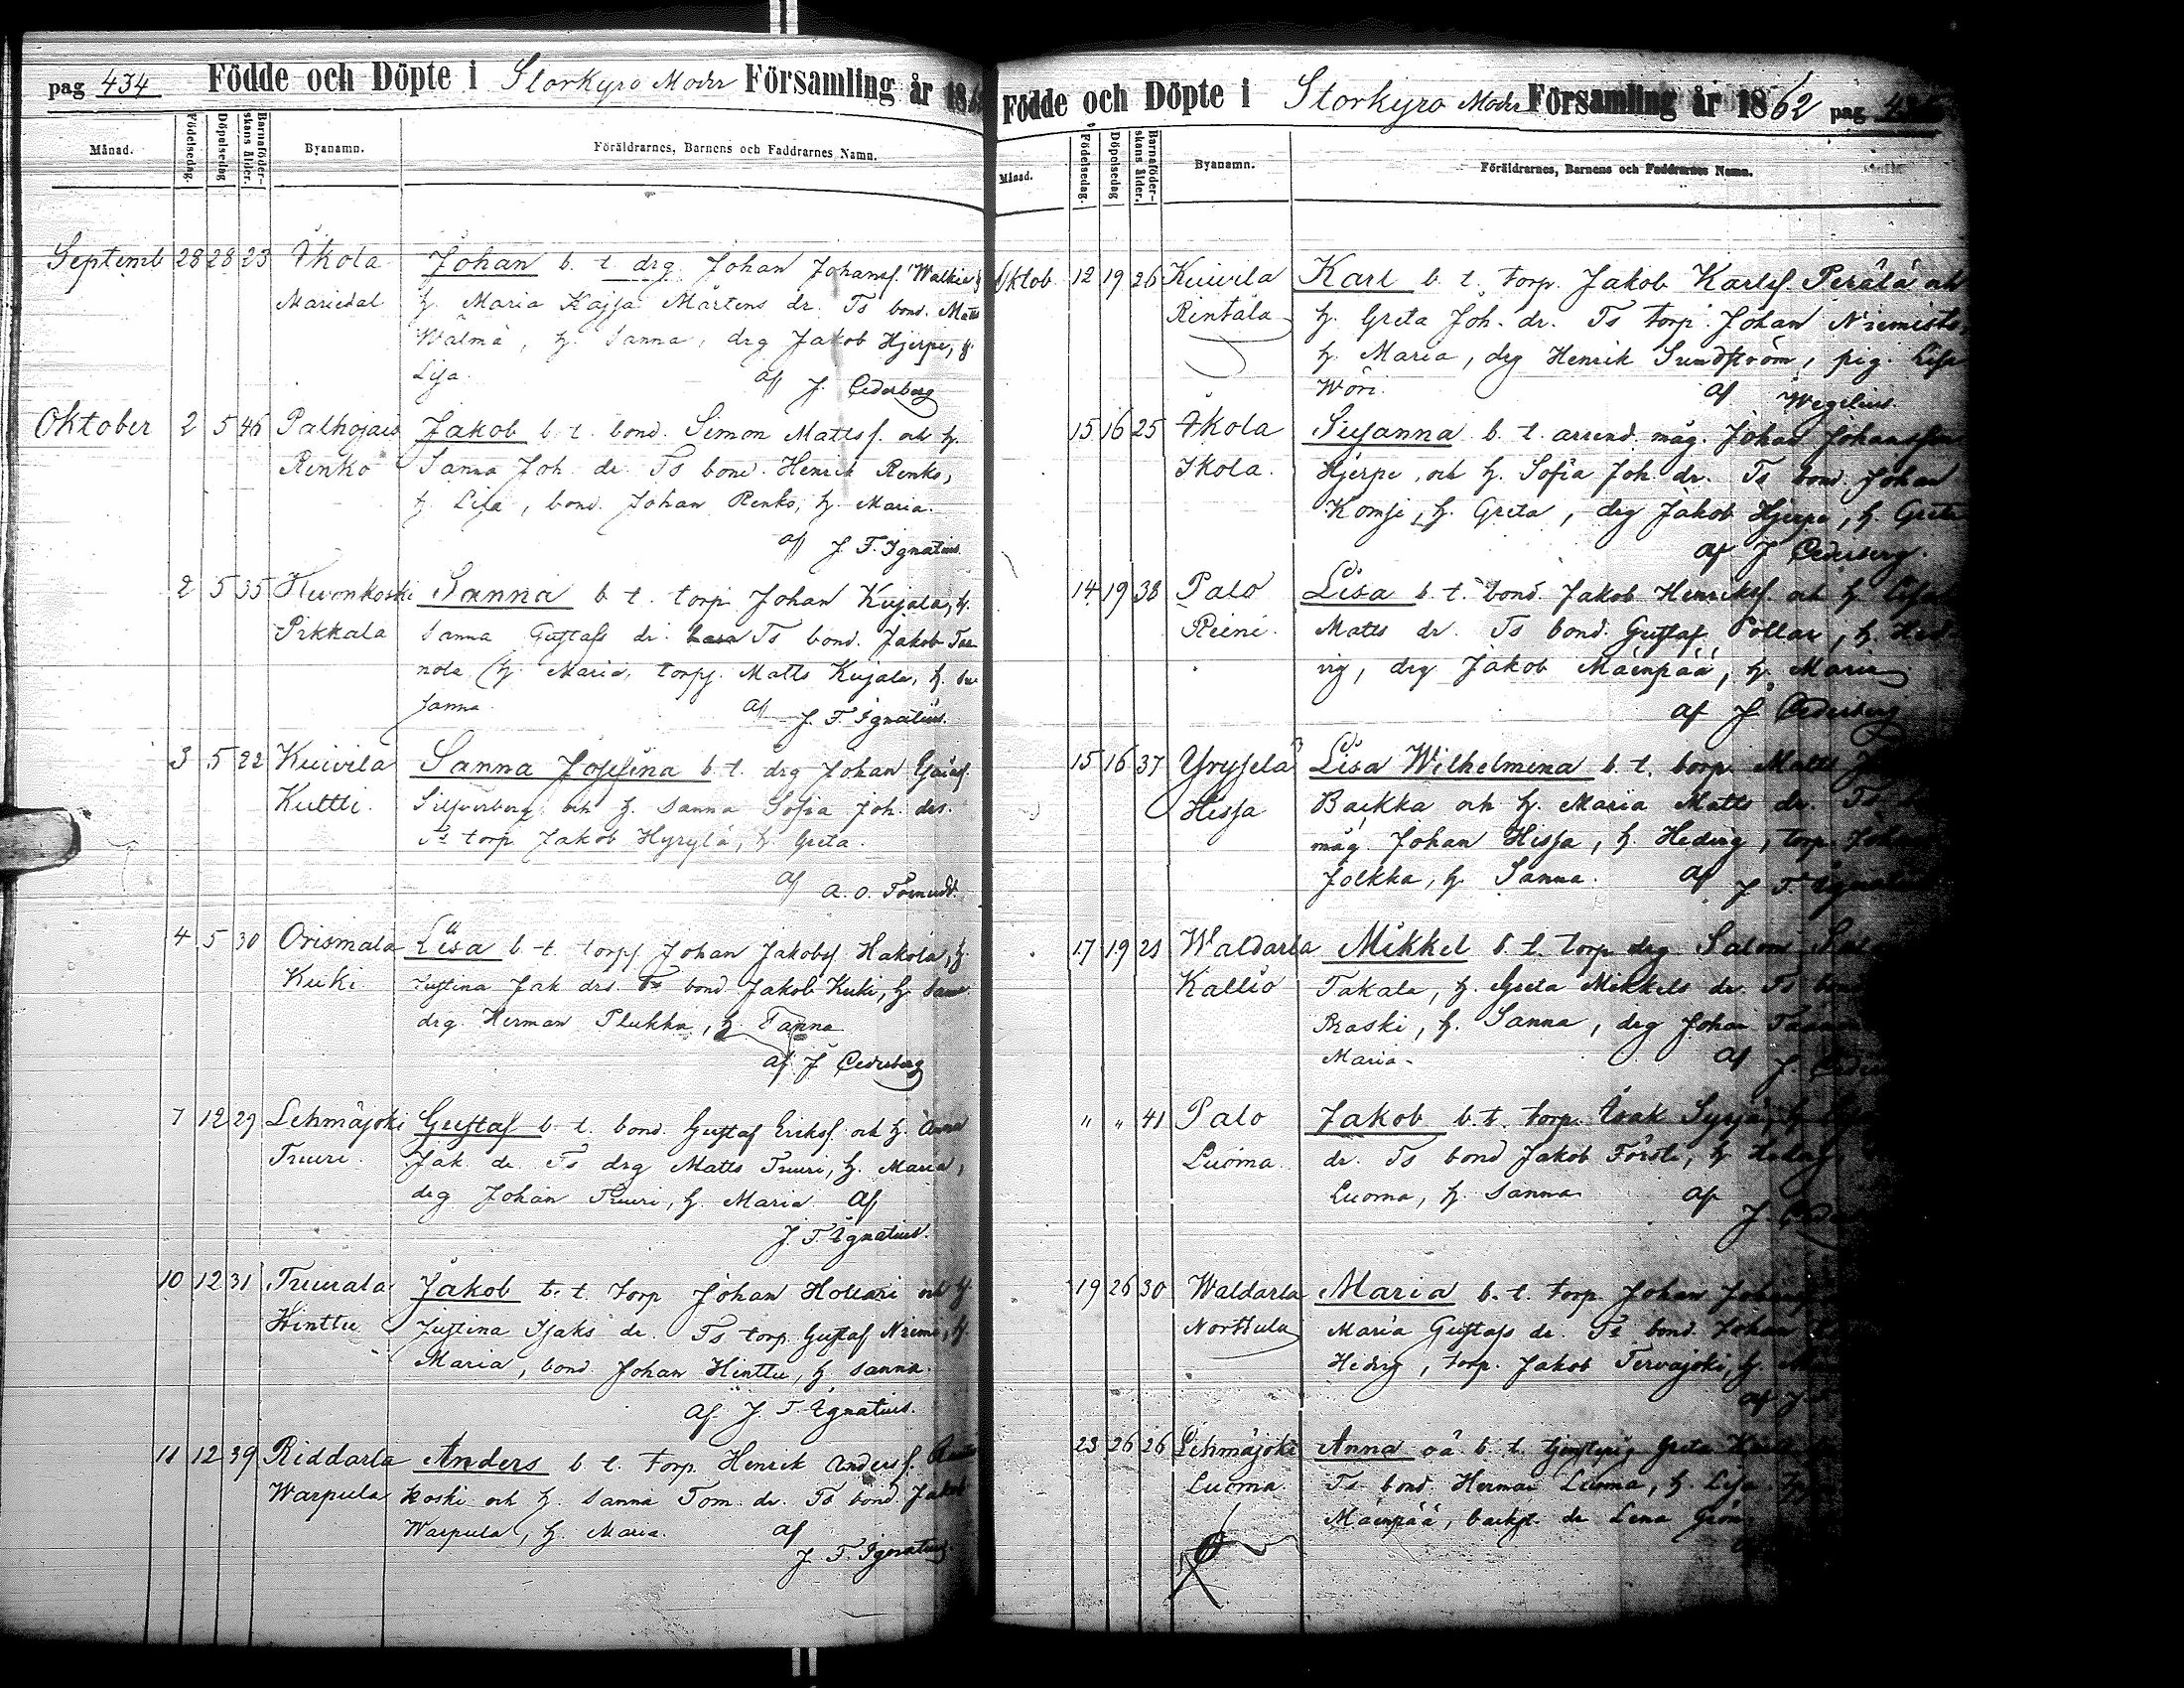 pag 434 Födde och Döpte i Storkyro Moder Församling år 186
Månad. Födelsedag. Döpelsedag Barnaföderskans ålder. Byanamn. Föräldrarnes, Barnens och Faddrarnes Namn.
Septemb 28 28 23 Ikola Johan b. t. drg Johan Johanss.
Mariedal h. Maria Kajsa Mårtens dr. Ts bond. Matts
Wälmä, h. Sanna, drg Jakob Hjerpe, h
Lisa. af J. Cederberg
Oktober 2 5 46 Palhojais Jakob b. t. bond. Simon Mattss. och h.
Renko Sanna Joh. dr. Ts bond. Henrik Renko,
h. Lisa, bond. Johan Renko, h. Maria.
af J. F. Ignatius.
2 5 35 Hevonkoski Sanna b. t. torp. Johan Kujala, h.
Pikkala Sanna Gustafs dr. Ts bond. Jakob
nola h. Maria, torp. Matts Kujala, h. Su
sanna. af J. F. Ignatius.
3 5 22 Kuivila Sanna Josefina b. t. drg Johan
Kuttti. Silfverberg och h. Sanna Sofia Joh. drs.
Ts torp. Jakob Hyrylä, h. Greta.
af A. O. Törnudd.
4 5 30 Orismala Lisa b. t. torp. Johan Jakobss. Hakola, h.
Kuki Justina Jak. drs. Ts bond. Jakob Kuki, h.
drg. Herman Plukka, h. Sanna
af J. Cederberg
7 12 29 Lehmäjoki Gustaf b. t. bond. Gustaf Erikss. och h. Anna
Tuuri. Jak. dr. Ts drg Matts Tuuri, h. Maria,
drg Johan Tuuri, h. Maria af
J. F. Ignatius.
10 12 31 Tuurala Jakob b. t. torp. Johan och h.
Hinttu Justina Isaks dr. Ts torp. Gustaf Niemi, h.
Maria, bond. Johan Hinttu, h. Sanna.
af J. F. Ignatius.
11 12 39 Riddarla Anders b. t. torp. Henrik Anderss.
Warpula koski och h. Sanna Tom. dr. Ts bond. Jakob
Warpula, h. Maria. af
J. F. Ignatius
Födde och Döpte i Storkyro Moder Församling år 1862 pag
Månad. Födelsedag. Döpelsedag Barnaföderskans ålder. Byanamn. Föräldrarnes, Barnens och Faddrarnes Namn.
Oktob 12 19 26 Kuivila Karl b. t. torp. Jakob Karlss. Perälä och
Rintala h. Greta Joh. dr. Ts torp. Johan Niemistö,
h. Maria, drg Henrik Sundström, pig. Lisa
Wöri. af Wegelius.
15 16 25 Ikola Susanna b. t. arrend. måg. Johan Johansson
Ikola. Hjerpe och h. Sofia Joh. dr. Ts bond. Johan
Komsi, h. Greta, drg Jakob Hjerpe, h. Greta
af J. Cederberg.
14 19 38 Palo Lisa b. t. bond. Jakob Henrikss. och h. Lisa
Reini. Matts dr. Ts bond. Gustaf Pollar, h. Hed-
vig, drg Jakob Mäenpää, h. Maria
af J. Cederberg
15 16 37 Yryselä Lisa Wilhelmina b. t. torp. Matts
Hissa Backka och h. Maria Matts dr. Ts
måg. Johan Hissa, h. Hedvig, torp. Johan
Jolkka, h. Sanna. af J. F. Ignatius
17 19 21 Waldarla Mikkel b. t. torp. drg Salom.
Kallio Takala, h. Greta Mikkels dr. Ts bond
Raski, h. Sanna, drg Johan
Maria. af J.
" " 41 Palo Jakob b. t. torp. Isak Syrjä, h.
Luoma. dr. Ts bond Jakob Försti, h. Hedvig
Luoma, h. Sanna. af
J.
19 26 30 Waldarla Maria b. t. torp. Johan
Norttula Maria Gustafs dr. Ts bond. Johan
Hedvig, torp. Jakob Tervajoki, h.
af J
23 26 26 Lehmäjoki Anna oä. b. t. Greta
Luoma. Ts bond. Herman Luoma, h. Lisa
Mäenpää, backst. dr Lena